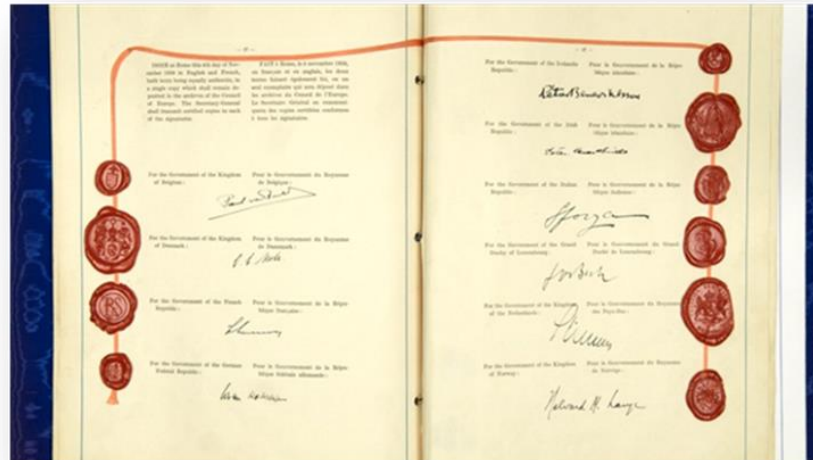 DONE at Rome this 4th day of Nov-
ember 1950 in English and French,
both texts being equally authentic, in
a single copy which shall remain de-
posited in the archives of the Council
of Europe. The Secretary-General
shall transmit certified copies to each
of the signatories.
FAIT à Rome, le 4 novembre 1950,
en français et en anglais, les deux
textes faisant également foi, en un
seul exemplaire qui sera déposé dans
les archives du Conseil de l'Europe.
Le Secrétaire Général en communi-
quera des copies certifiées conformes
à tous les signataires.
For the Government of the Kingdom
of Belgium:
Pour le Gouvernement du Royaume
de Belgique:
For the Government of the Kingdom
of Denmark:
Pour le Gouvernement du Royaume
de Danemark:
For the Government of the French
Republic:
Pour le Gouvernement de la Répu-
blique française:
For the Government of the German
Federal Republic:
Pour le Gouvernement de la Répu-
blique fédérale allemande:
For the Government of the Icelandic
Republic:
Pour le Gouvernement de la Répu-
blique islandaise:
For the Government of the Irish
Republic:
Pour le Gouvernement de la Répu-
blique irlandaise:
For the Government of the Italian
Republic:
Pour le Gouvernement de la Répu-
blique italienne:
Sforza
For the Government of the Grand
Duchy of Luxembourg:
Pour le Gouvernement du Grand
Duché de Luxembourg:
Jos Bech
For the Government of the Kingdom
of the Netherlands:
Pour le Gouvernement du Royaume
des Pays-Bas:
For the Government of the Kingdom
of Norway:
Pour le Gouvernement du Royaume
de Norvège:
Halvard M. Lange